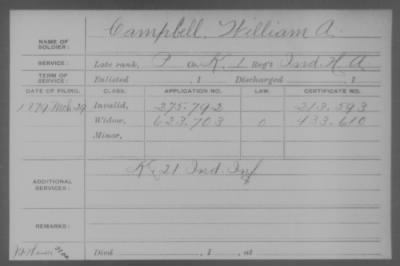 NAME OF SOLDIER: Campbell, William A.
SERVICE: Late rank, P Co K, 1 Reg't Ind. H. A.
TERM OF SERVICE: Enlisted , 1 Discharged , 1
DATE OF FILING. CLASS. APPLICATION NO. LAW. CERTIFICATE NO.
1879 Mch. 29 Invalid, 275.792 213.593
Widow, 623.703 0 433.610
Minor,
ADDITIONAL SERVICES: K 21 Ind. Inf
REMARKS:
Died , 1 , at